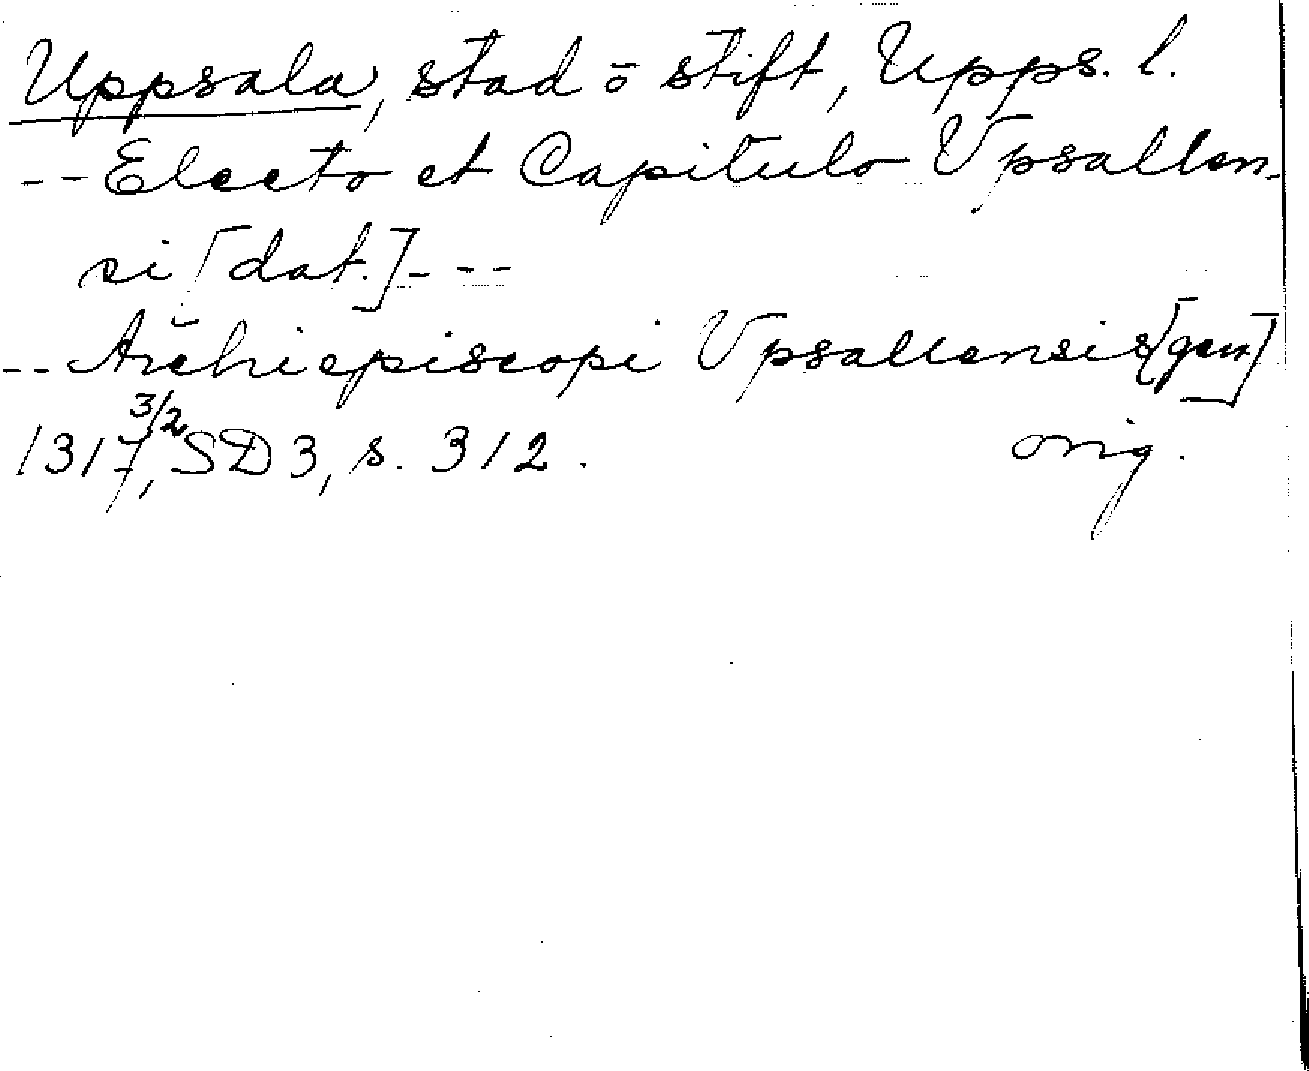 Uppsala, stad o stift, Upps. l.
-- Electo et Capitulo Vpsallen-
si [dat.] ---
-- Archiepiscopi Vpsallensis [gen]
1317 3/2, SD 3, s. 312. orig.